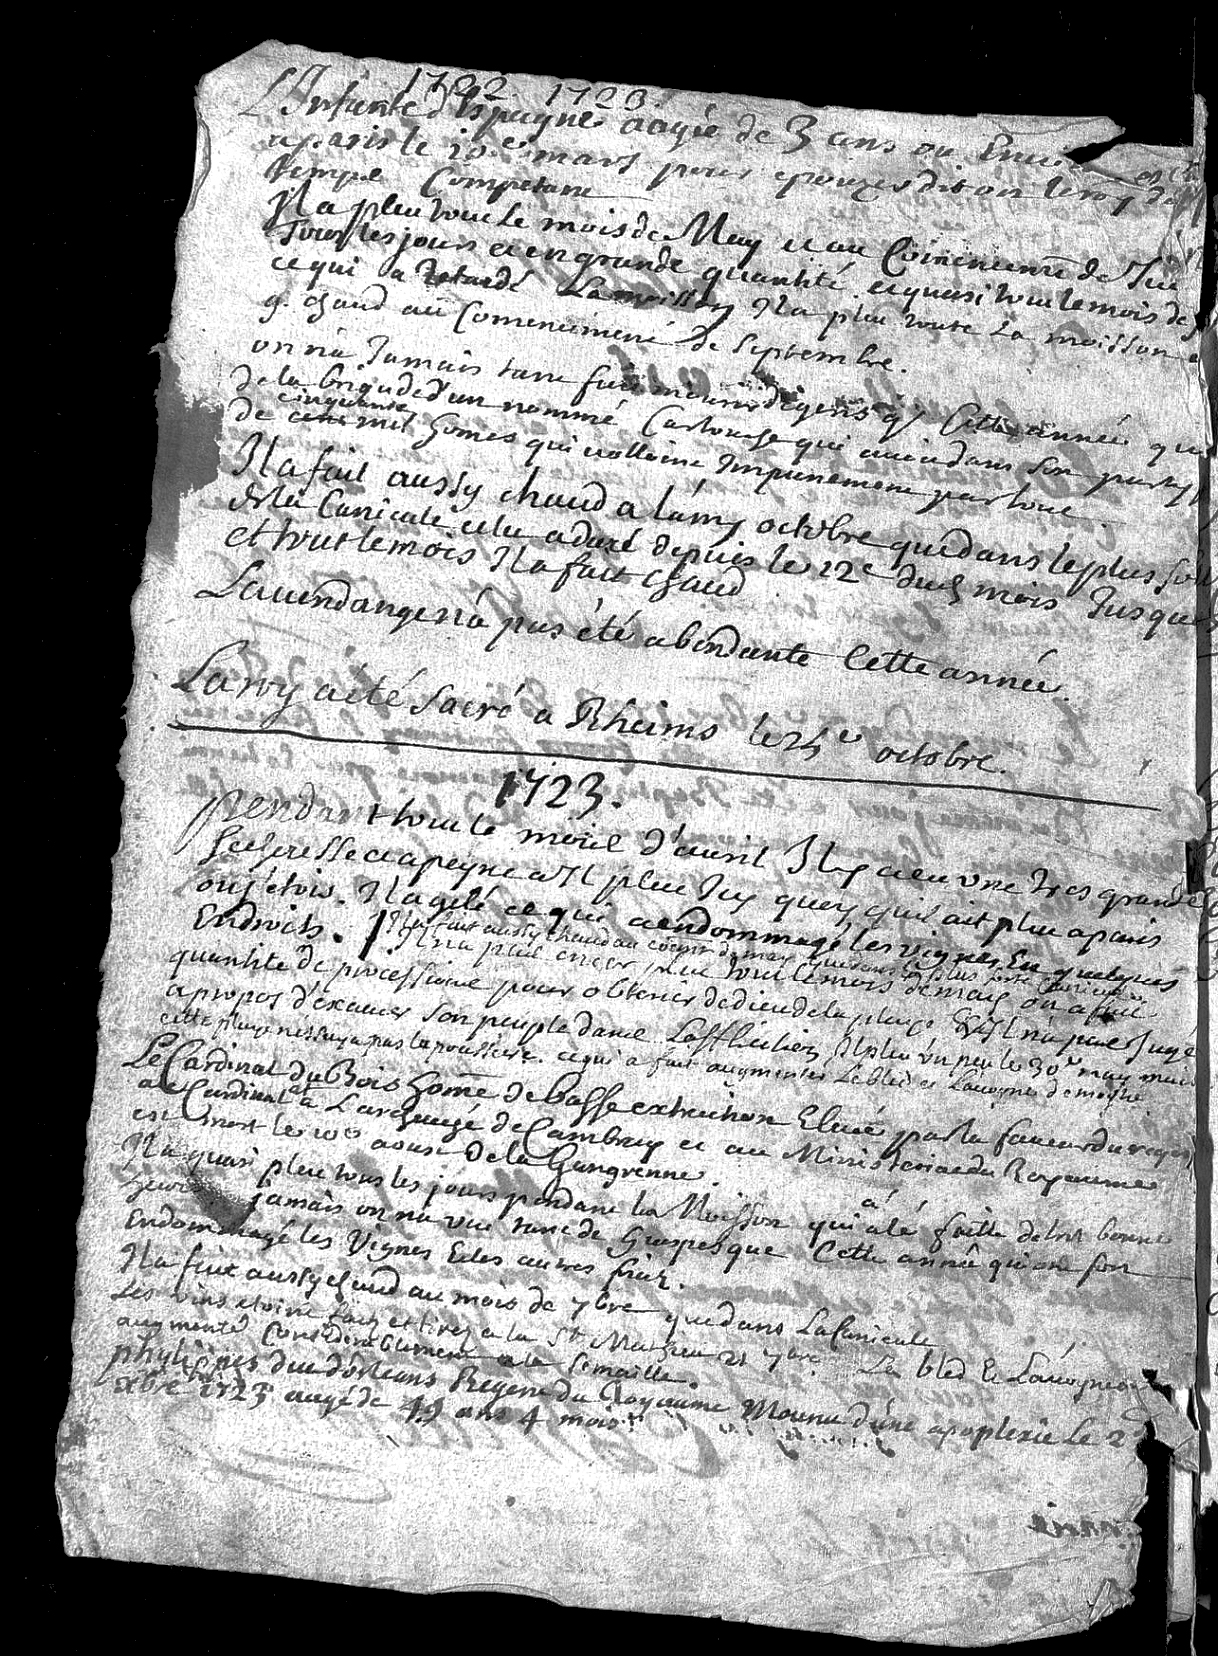 1722 1723.
L'Infante d'Espagne aagée de 3 ans ou Envi
a paris le 20e mars pour epouzer dit on le roy
temps Competant
Il a pleu tout le mois de May et au Comencemt de Jui
Tous les jours et en grande quantité et quasi tout le mois de
ce qui a Retardé La moisson Il a pleu toute La moisson
g. chaud au Comencement de Septembre.
on n'a Jamais tant fait mourir de gens q/ Cette année
de la brigade d'un nommé Cartouche qui avoit dans Son party
cinquante
de mil homes qui volloint Impunement par tout.
Il a fait aussy chaud a la my octobre que dans le plus
de la Canicule cela a duré depuis le 12e dud mois Jusque
et tout le mois Il a fait chaud
La vendange n'a pas été abondante Cette année.
Le roy a été Sacré a Rheims le 25e octobre.
1723.
Pendant tout le mois d'avril Il y a eu une tres grande
secheresse et a peyne a Il pleu Icy quoy qu'il ait pleu a paris
ou j'etois. Il a gelé ce qui a endommagé les vignes En quelques
Endroits. Il a fait aussy chaud au Comt de may que dans la plus forte Canicule
Il n'a pleu encor tout le mois de may on a fait
quantité de processions pour obtenir de dieu de la pluye Il n'a pas Jugé
a propos d'exaucer Son peuple dans L'affliction Il pleu un peu le 30e may mais
cette pluye n'essuya pas la poussiere. ce qui a fait augmenter Le bled et
Le Cardinal du Bois home de basse extraction Elevé par la faveur du regent
au Cardinalat a L'archevêché de Cambray et au Ministeriat du Royaume
est mort le 10e aoust de la Gangrenne.
Il a quasi pleu tous les jours pendant la Moisson qui a été faitte de tres bonne
heure jamais on n'a vue tant de Guespes que Cette année qui ont fort
Endommagé les Vignes Et les autres fruiz.
Il a fait aussy chaud au mois de 7bre que dans La Canicule
Les vins etoint faits et tirez a la St Mathieu 21 7bre. Le bled &
augmenté Considerablement a la Semaille.
phylippes duc d'orleans Regent du Royaume Mourut d'une apoplexie le 2
xbre 1723 aagé de 49 ans 4 mois